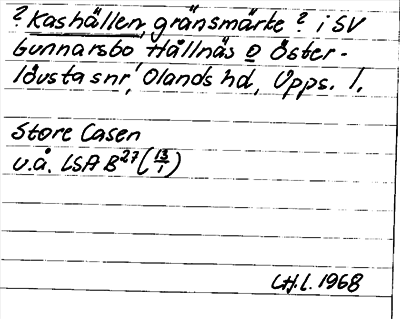 ? Kashällen, gränsmärke ? i SV
Gunnarsbo Hållnäs o Öster-
lövsta snr, Olands hd, Upps. l.
Store Casen
u.å. LSA B27 (13/1)
CH.L. 1968